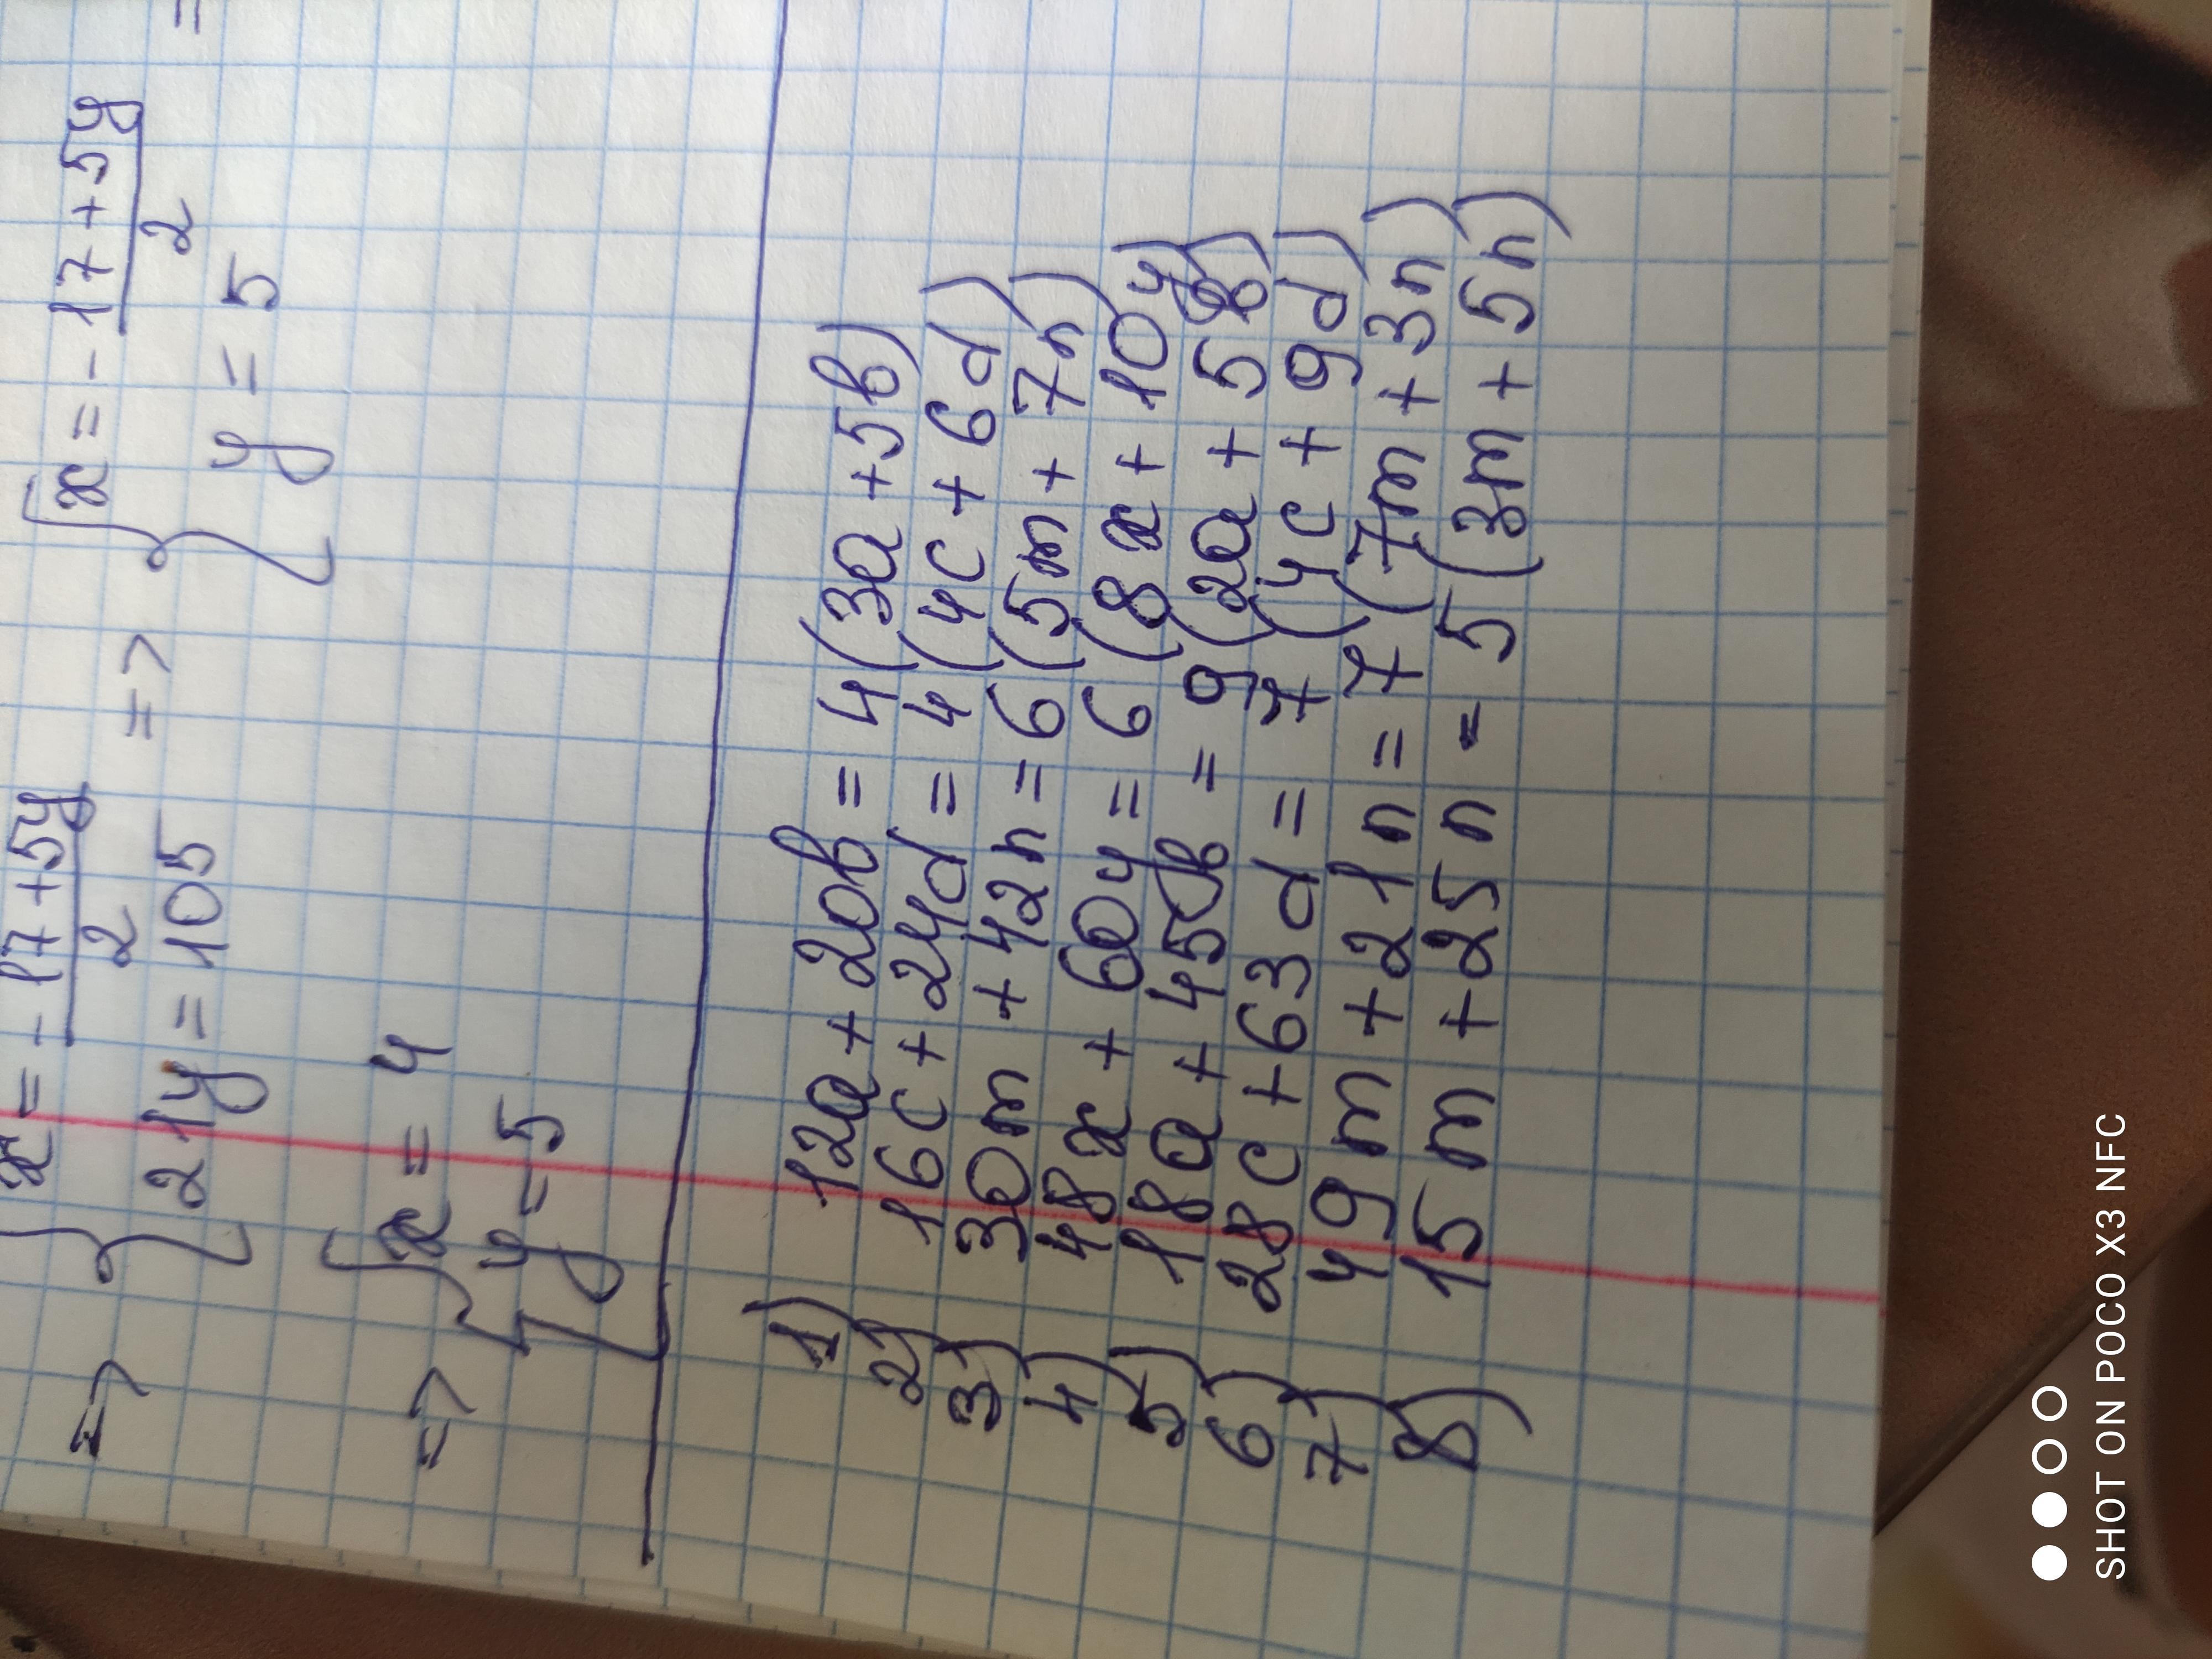 => { x = - 17 + 5y / 2 => { x = - 17 + 5y / 2 =
21y = 105 y = 5
=> { x = 4
y = 5
1) 12a + 20b = 4 (3a + 5b)
2) 16c + 24d = 4 (4c + 6d)
3) 30m + 42n = 6 (5m + 7n)
4) 48x + 60y = 6 (8x + 10y)
5) 18a + 45b = 9 (2a + 5b)
6) 28c + 63d = 7 (4c + 9d)
7) 49m + 21n = 7 (7m + 3n)
8) 15m + 25n = 5 (3m + 5n)
SHOT ON POCO X3 NFC